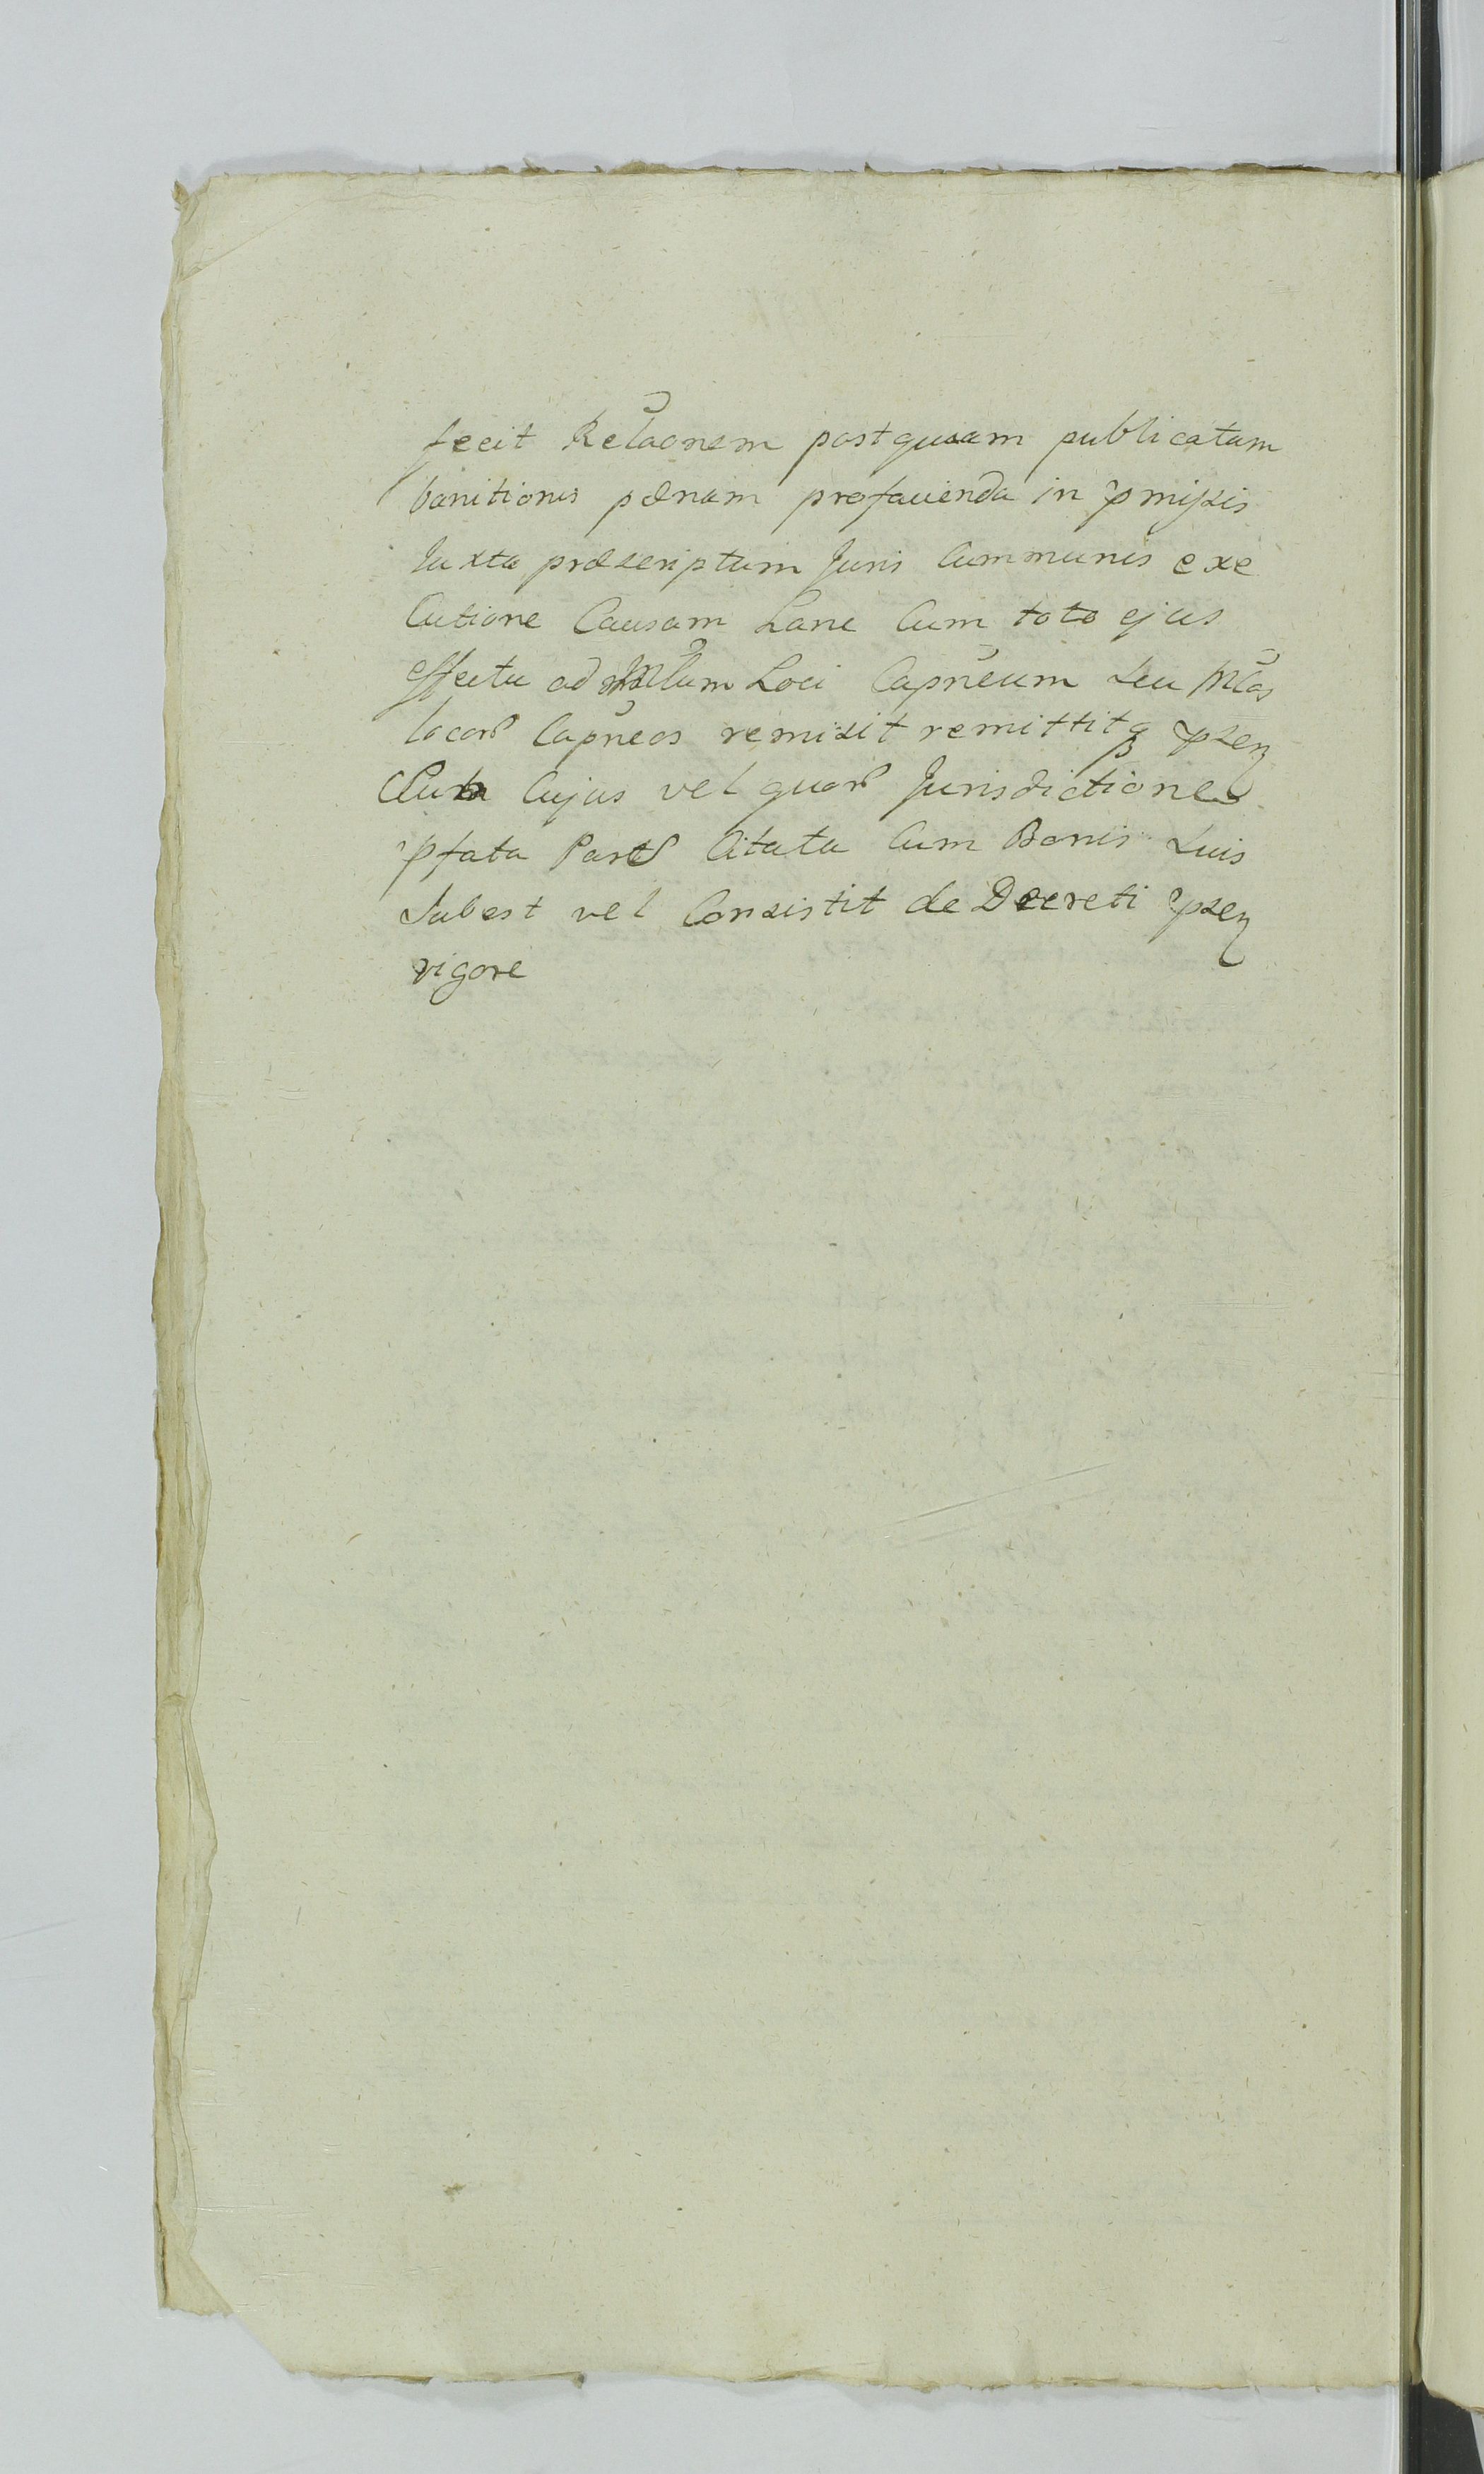 fecit Relaõnem postquam publicatam
banitionis pænam pro facienda in pmissis
Juxta præscriptum Juris Communis exe
Cutione Causam Hanc Cum toto ejus
effectu ad Loci Capñeum seu Mtõs
locorũ Capñeos remisit remittitq psen
Cujus vel quorũ Jurisdictione
pfata Pars Citata Cum Bonis suis
Subest vel Consistit de Decreti psen
vigore